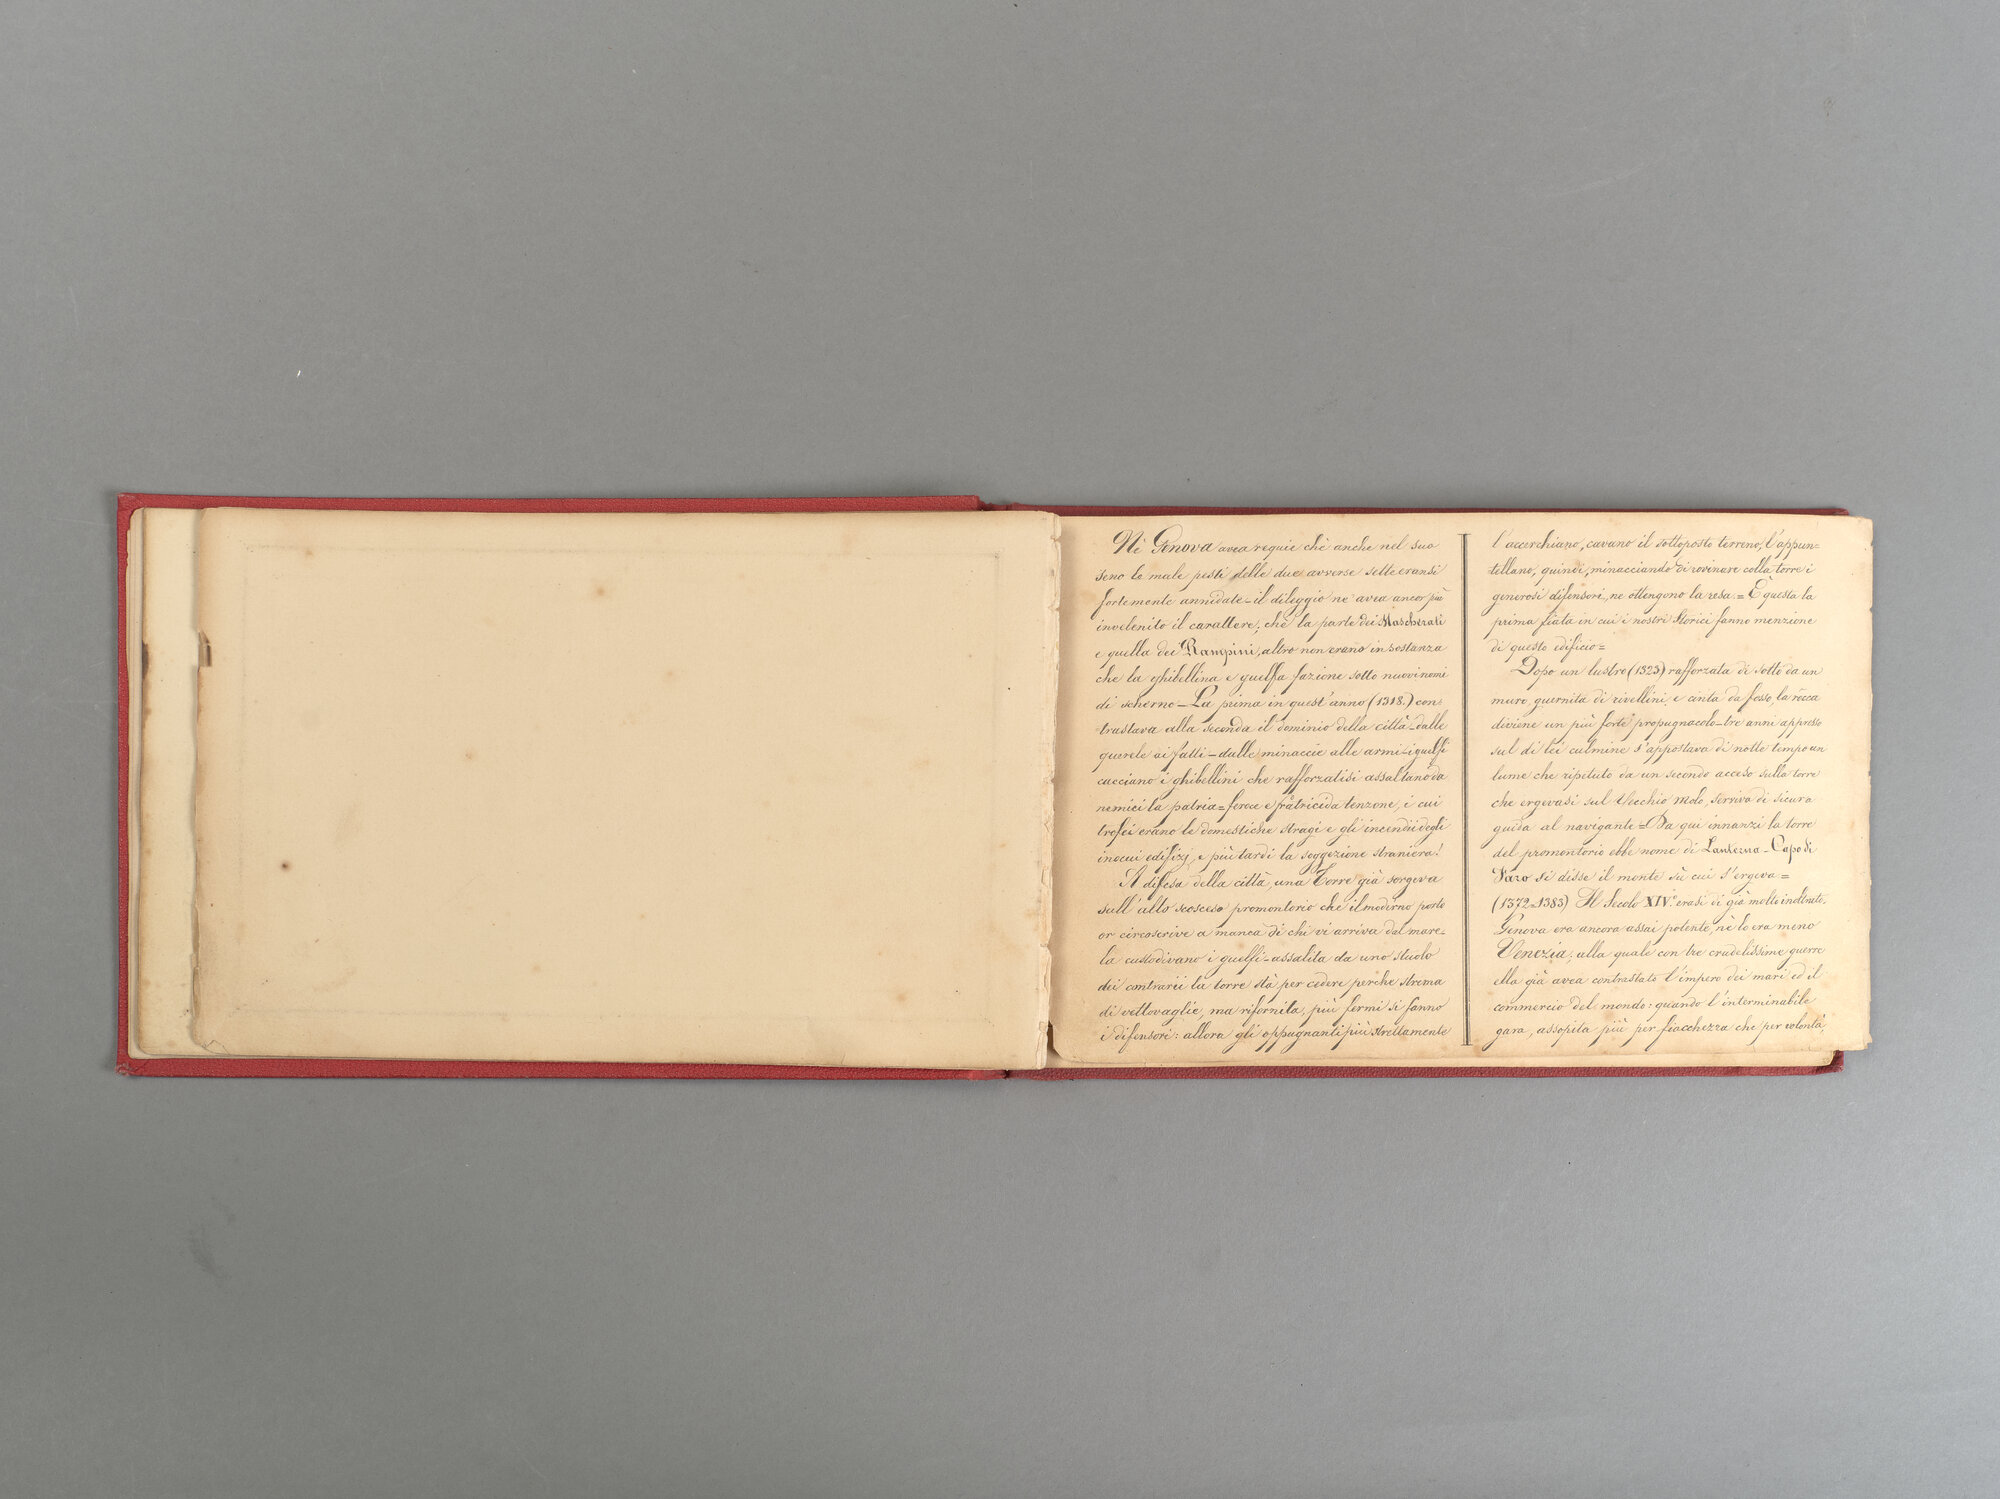 Nè Genova avea requie chè anche nel suo
seno le male pesti delle due avverse sette eransi
fortemente annidate - il dileggio ne avea ancor più
invelenito il carattere; chè la parte dei Mascherati
e quella dei Rampini, altro non erano in sostanza
che la ghibellina e guelfa fazione sotto nuovi nomi
di scherno - La prima in quest'anno (1318.) con=
trastava alla seconda il dominio della città - dalle
querele ai fatti - dalle minaccie alle armi - i guelfi
cacciano i ghibellini che rafforzatisi assaltano da
nemici la patria = feroce e fratricida tenzone, i cui
trofei erano le domestiche stragi e gli incendii degli
inocui edifizj, e più tardi la soggezione straniera!
A difesa della città, una Torre già sorgeva
sull'alto scosceso promontorio che il moderno porto
or circoscrive a manca di chi vi arriva dal mare -
la custodivano i guelfi - assalita da uno stuolo
dei contrarii la torre stà per cedere perchè strema
di vettovaglie, ma rifornita, più fermi si fanno
i difensori: allora gli oppugnanti più strettamente
l'accerchiano, cavano il sottoposto terreno, l'appun=
tellano, quindi, minacciando di rovinare colla torre i
generosi difensori, ne ottengono la resa. = È questa la
prima fiata in cui i nostri Storici fanno menzione
di questo edificio =
Dopo un lustro (1323) rafforzata di sotto da un
muro guernita di rivellini e cinta da fosso, la rocca
diviene un più forte propugnacolo - tre anni appresso
sul di lei culmine s'appostava di notte tempo un
lume che ripetuto da un secondo acceso sulla torre
che ergevasi sul Vecchio Molo, serviva di sicura
guida al navigante = Da qui innanzi la torre
del promontorio ebbe nome di Lanterna - Capo di
Faro si disse il monte sù cui s'ergeva =
(1372=1383) Il Secolo XIV.° erasi di già molto inoltrato,
Genova era ancora assai potente, nè lo era meno
Venezia; alla quale con tre crudelissime guerre
ella già avea contrastato l'impero dei mari ed il
commercio del mondo: quando l'interminabile
gara, assopita più per fiacchezza che per volontà,